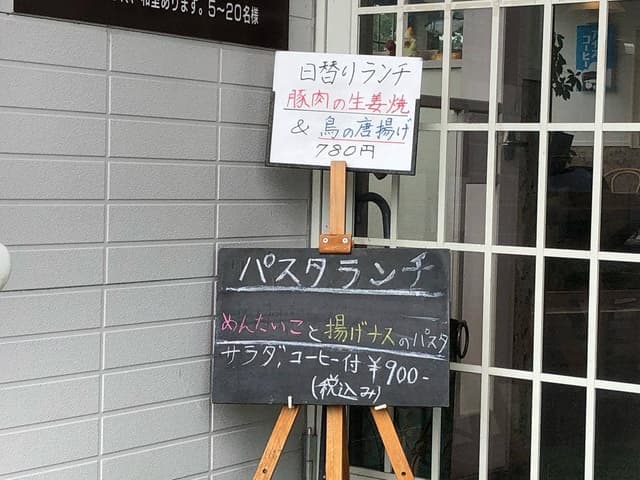 和室あります。5～20名様
アイス
コーヒー
日替りランチ
豚肉の生姜焼
& 鳥の唐揚げ
780円
パスタランチ
めんたいこと揚げナスのパスタ
サラダ、コーヒー付 ¥900-
(税込み)